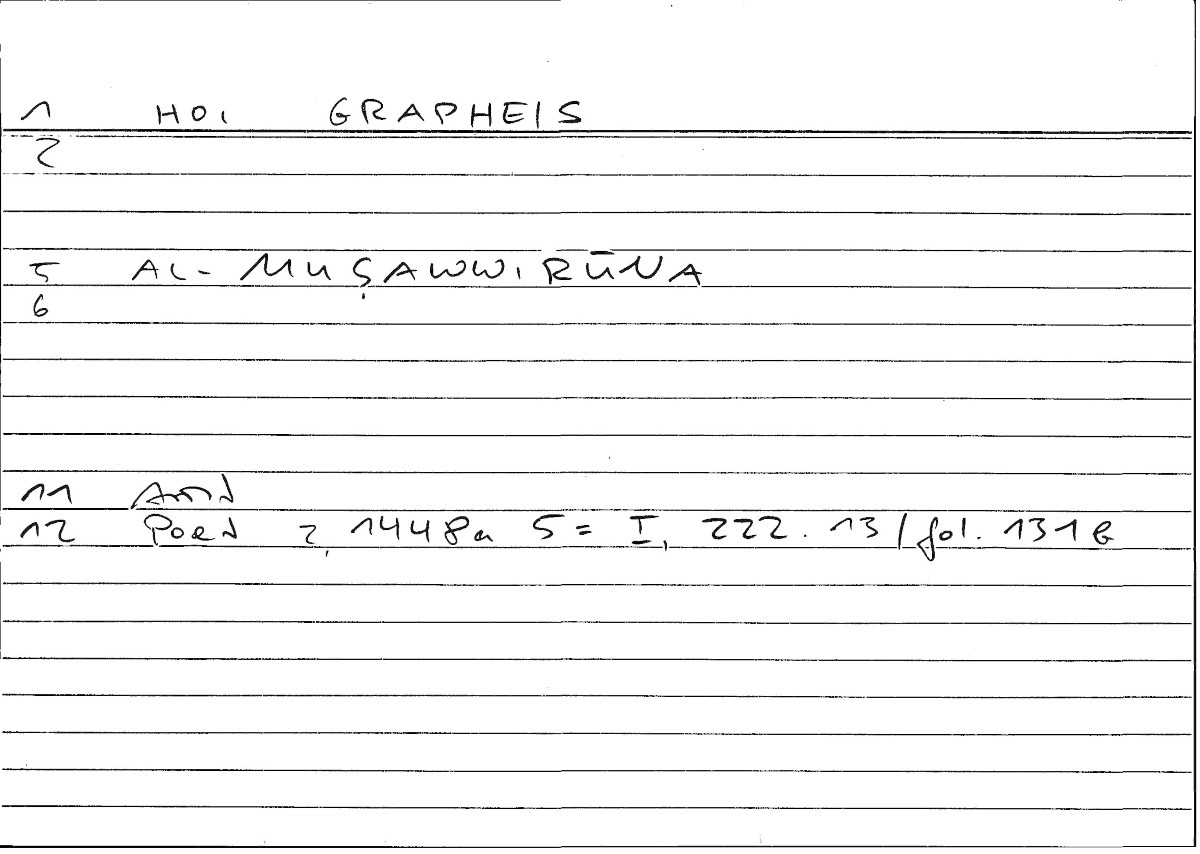 1 HOI GRAPHEIS
2
5 AL-MUṢAWWIRŪNA
6
11 Arist
12 Poet 2, 1448a 5 = I, 222.13/fol. 131b